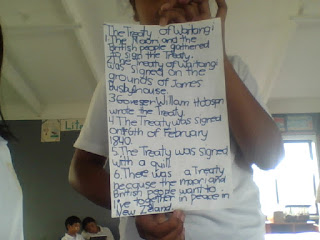 The Treaty of Waitangi
1.The Maori and the
British people gathered
to sign the Treaty.
2.The Treaty of Waitangi
was signed on the
grounds of James
Busby house.
3.Goveser William Hobson
wrote the Treaty.
4.The Treaty was signed
on 6th of February
1840.
5.The Treaty was signed
with a quill
6.There was a Treaty
because the maori and
British people want to
live together in peace in
New Zealand